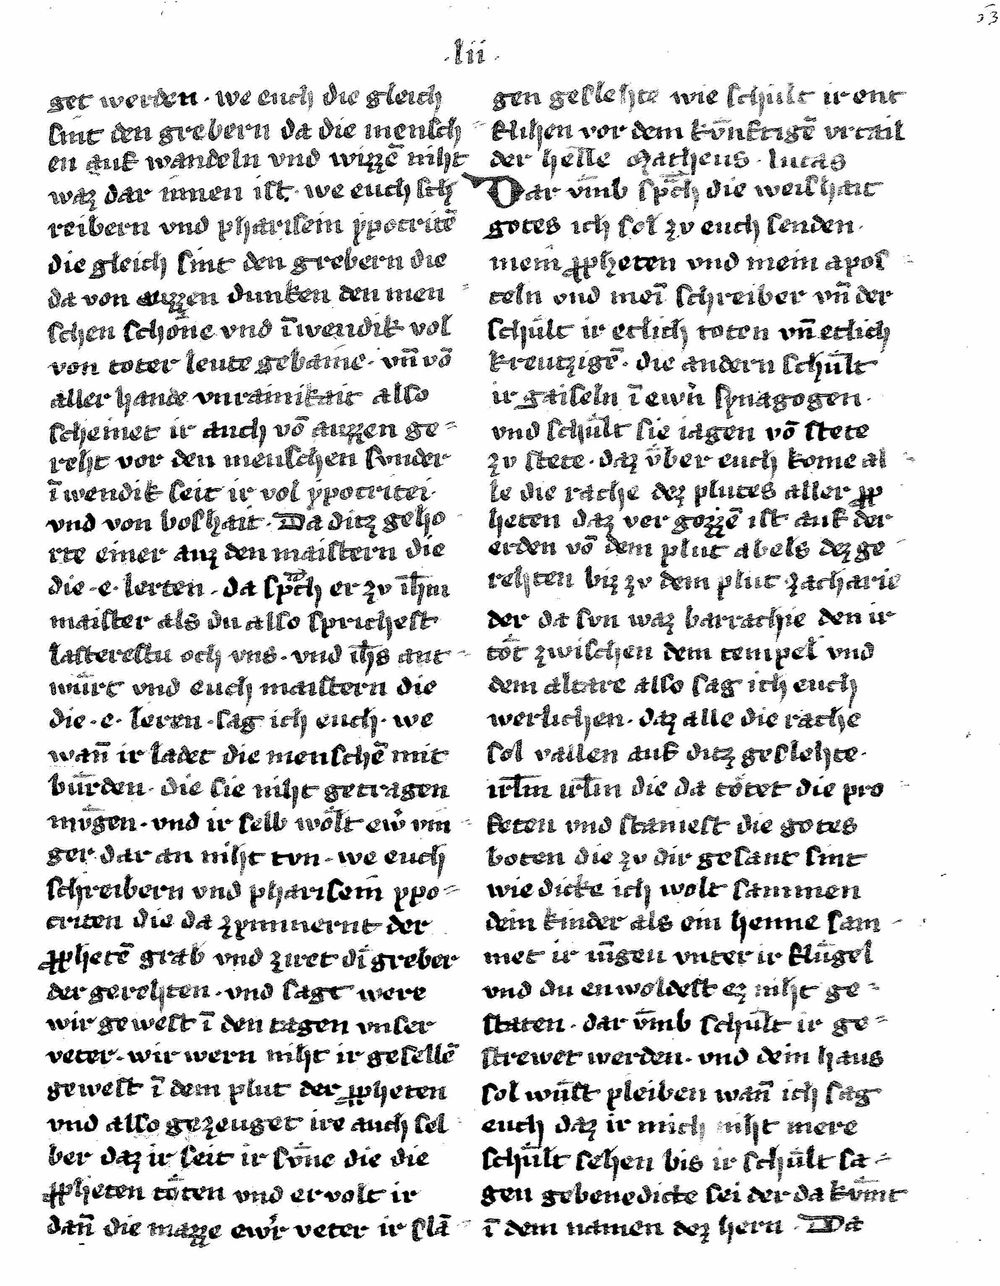 53
·lii·
get werden · we euch die gleich
sint den grebern da die mensch
en auf wandeln vnd wizzē niht
waz dar innen ist · we euch sch
reibern vnd pharisein ypocritē
die gleich sint den grebern die
da von auzzen dunken den men
schen schone vnd īwendik vol
von toter leute gebaine · vn̄ vō
aller hande vnrainikait also
scheinet ir auch vō auzzen ge
reht vor den menschen sunder
īwendik seit ir vol ypocritei
vnd von boshait · Da ditz geho
rte einer auz den maistern die
die · e · lerten · da sprach er zv ihm
maister als du also sprichest
lasterestu och vns · vnd ihs ant
wurt vnd euch maistern die
die · e · leren · sag ich euch · we
wan̄ ir ladet die menschē mit
burden · die sie niht getragen
mvgen · vnd ir selb wolt ewr vin
ger dar an niht tvn · we euch
schreibern vnd pharisein ypo
criten die da zymmernt der
ꝓphetē grab vnd ziret di greber
der gerehten · vnd sagt were
wir gewest ī den tagen vnser
veter · wir wern niht ir gesellē
gewest ī dem plut der ꝓpheten
vnd also gezeuget ire auch sel
ber daz ir seit ir svne die die
ꝓpheten toten vnd ervolt ir
dan̄ die mazze ewr veter ir slā
gen geslehte wie schult ir ent
flihen vor dem kvnftigē vrtail
der helle Matheus · lucas
Dar vmb sprach die weishait
gotes ich sol zv euch senden
mein ꝓpheten vnd mein apos
teln vnd meī schreiber vn̄ der
schult ir etlich toten vn̄ etlich
kreutzigē · die andern schult
ir gaiseln ī ewrn synagogen
vnd schult sie iagen vō stete
zv stete · daz vber euch kome al
le die rache dez plutes aller ꝓp
heten daz vergozzē ist auf der
erden vō dem plut abels dez ge
rehten biz zv dem plut zacharie
der da svn waz barrachie den ir
tot zwischen dem tempel vnd
dem altare also sag ich euch
werlichen · daz alle die rache
sol vallen auf ditz geslehte
irlm irlm die da totet die pro
feten vnd stainest die gotes
boten die zv dir gesant sint
wie dicke ich wolt sammen
dein kinder als ein henne sam
met ir iungen vnter ir flugel
vnd du enwoldest ez niht ge
staten · dar vmb schult ir ge
strewet werden · vnd dein haus
sol wust pleiben wan̄ ich sag
euch daz ir mich niht mere
schult sehen bis ir schult sa
gen gebenedicte sei der da kvmt
ī dem namen dez hern · Da